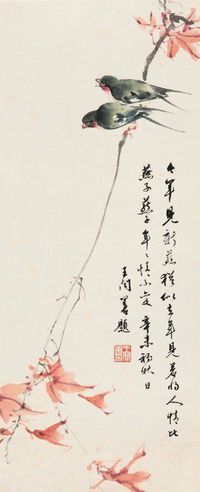 今年見新燕猶似去年見莫怕人情比
燕子燕子年〻情不變辛未初秋日
王閒善題